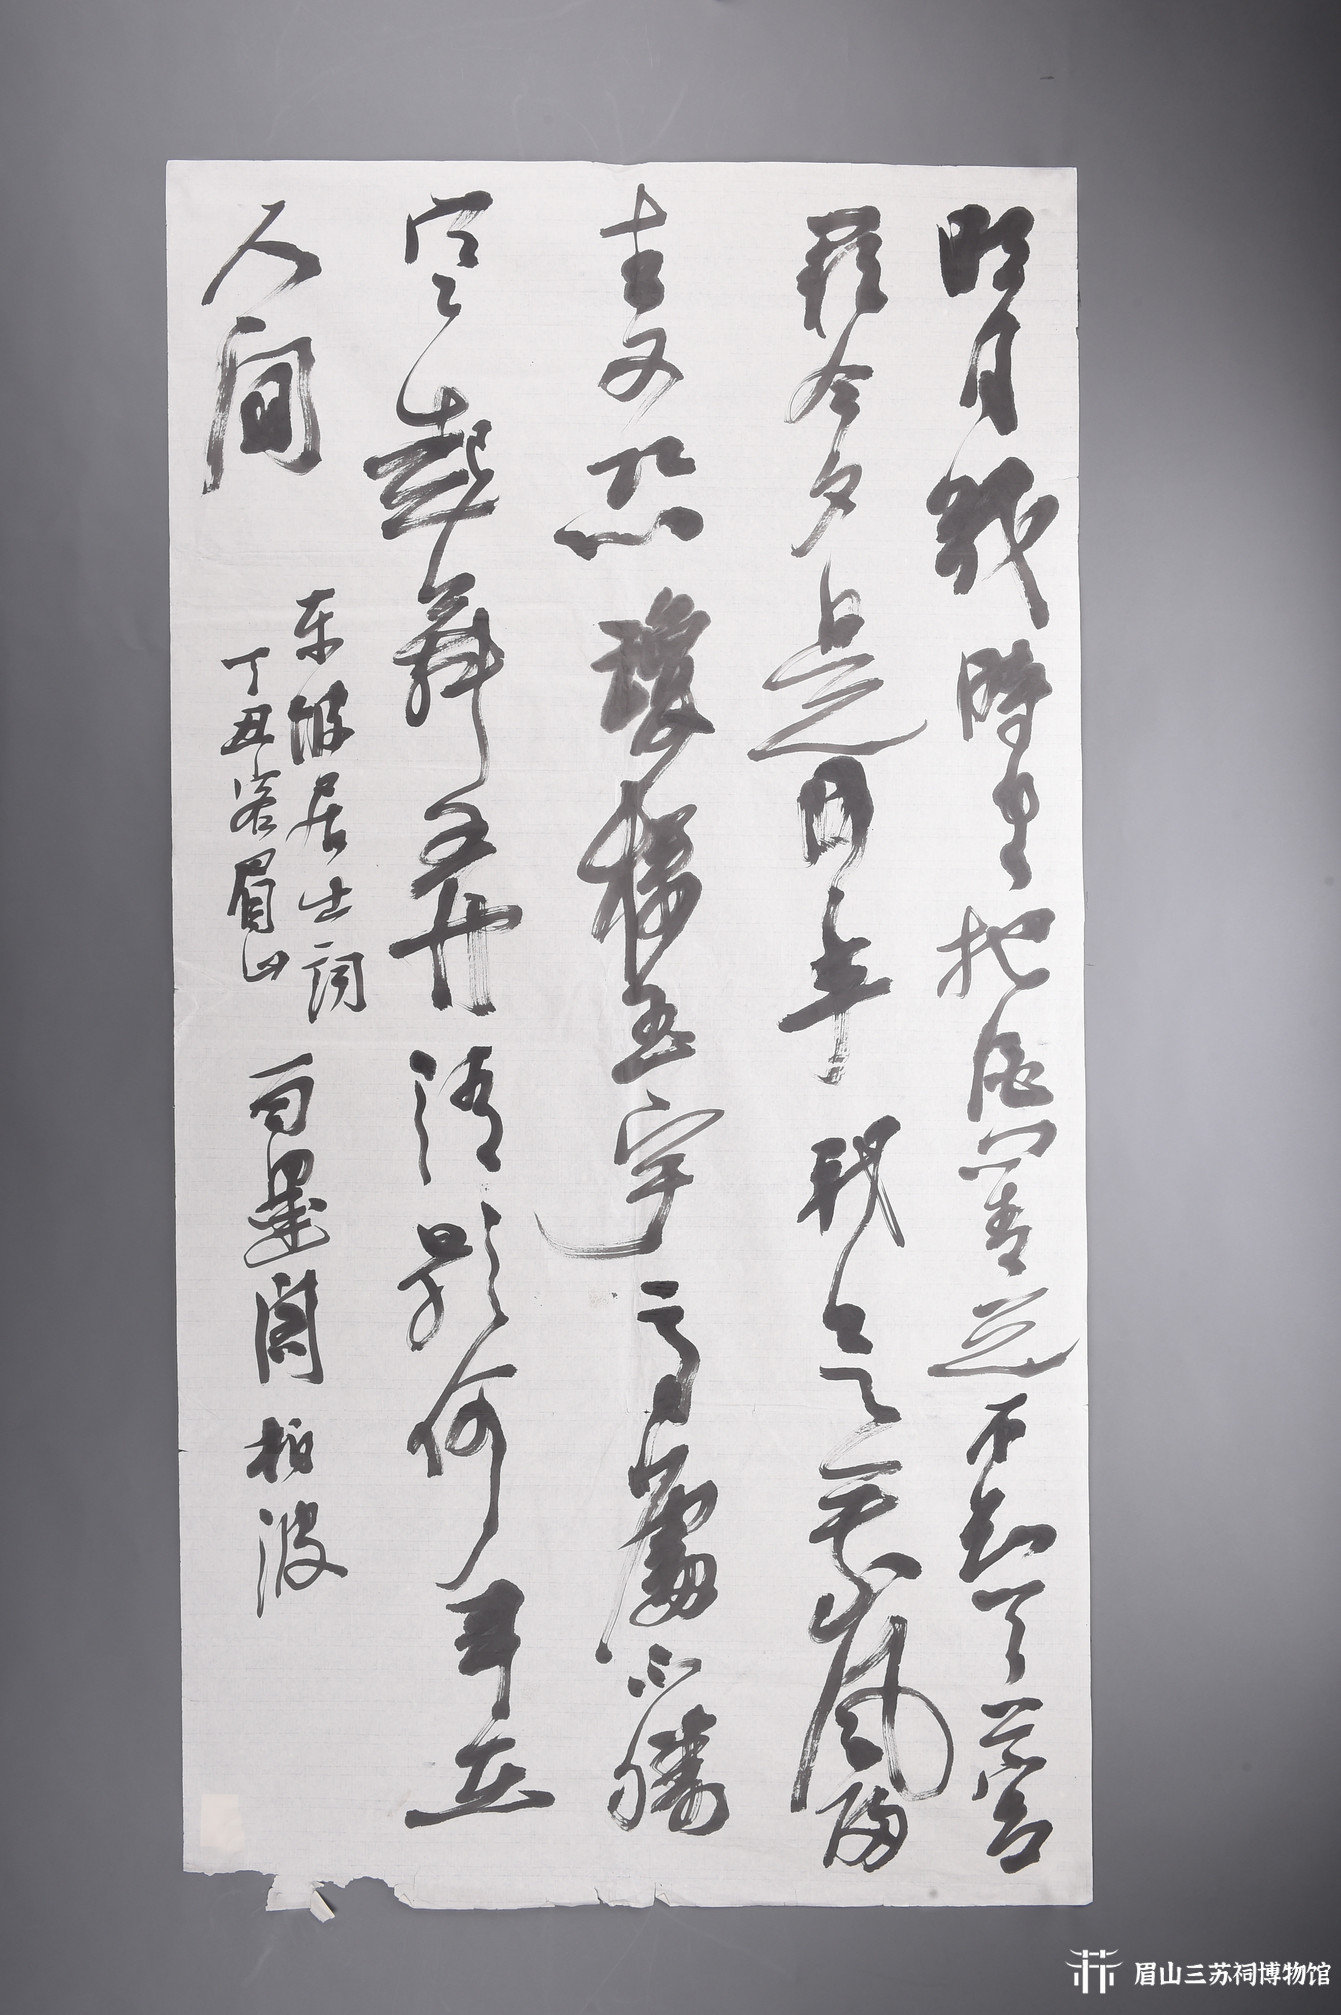 明月幾時有把酒問青天不知天上宫
闕今夕是何年我欲乘風歸
去又恐瓊樓玉宇高處不勝
寒起舞弄清影何似在
人间
东坡居士词
丁丑客眉山 百墨阁 柏波
眉山三苏祠博物馆